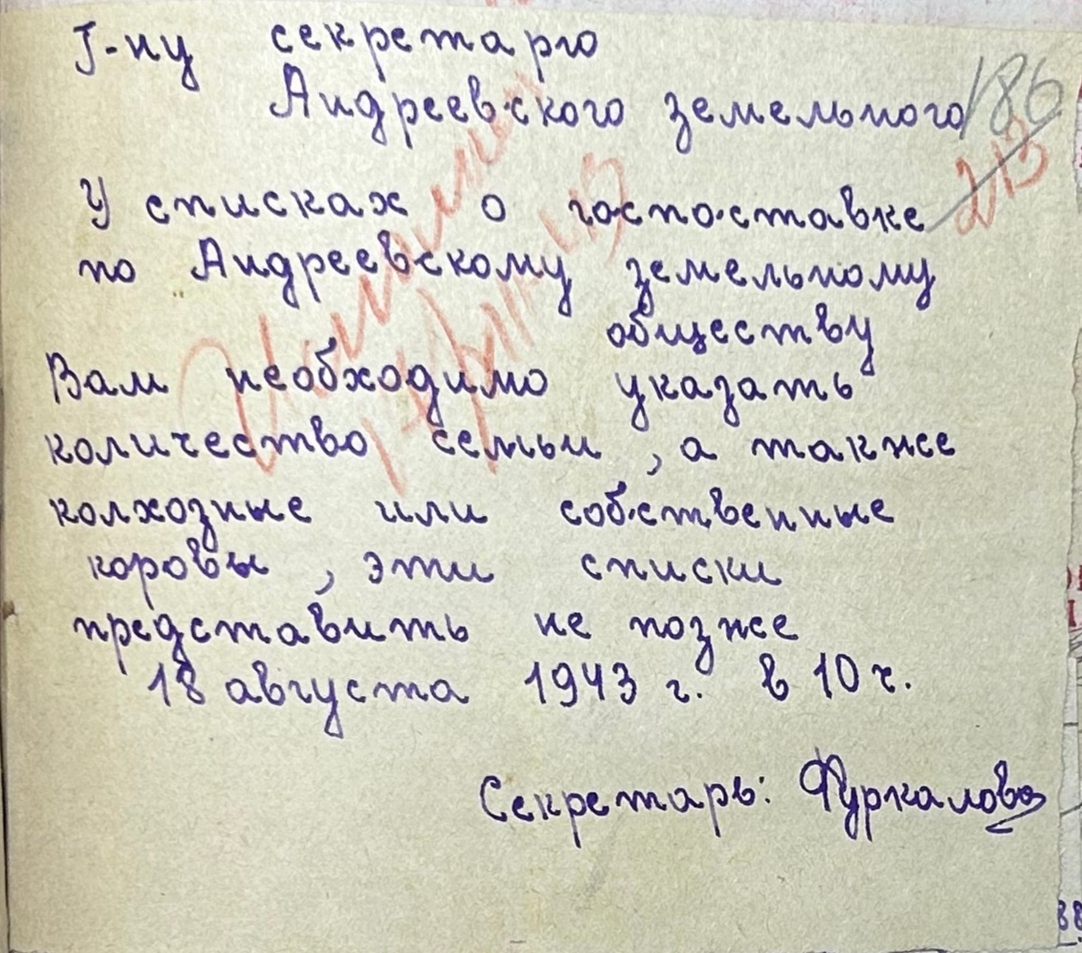 Г-ну секретарю
Андреевского земельного
186
213
У списках о госпоставке
по Андреевскому земельному
обществу
Вам необходимо указать
количество семьи, а также
колхозные или собственные
коровы, эти списки
представить не позже
18 августа 1943 г. в 10 ч.
Секретарь: Фуркалова